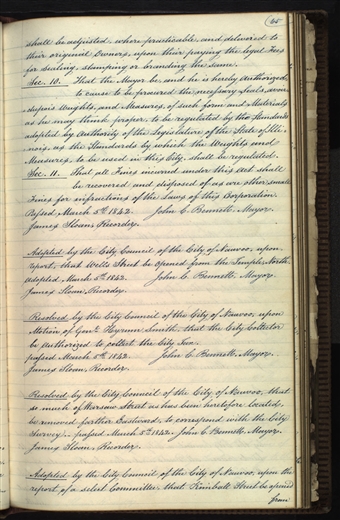 65
shall be adjusted, where practicable, and delivered to
their original Owners, upon their paying the legal Fees
for sealing, stamping or branding the same.
Sec. 10. That the Mayor be, and he is hereby Authorized,
to cause to be procured the necessary Seals, avoir-
dupois Weights, and Measures, of such form and Materials
as he may think proper, to be regulated by the Standards
adopted by Authority of the Legislature of the State of Illi-
nois, as the Standards by which the Weights and
Measures, to be used in this City, shall be regulated.
Sec. 11. That all Fines incurred under this Act shall
be recovered and disposed of as are other
Fines for infractions of the Laws of this Corporation
Passed, March 5th 1842. John C. Bennett, Mayor.
James Sloan, Recorder.
Adopted by the City Council of the City of Nauvoo, upon
report, that Wells Street be opened from the Temple North.
Adopted, March 5th 1842. John C. Bennett, Mayor.
James Sloan, Recorder.
Resolved by the City Council of the City of Nauvoo, upon
Motion of Hyrum Smith, that the City Collector
be authorized to collect the City Tax.
passed March 5th 1842. John C. Bennett, Mayor.
James Sloan, Recorder.
Resolved, by the City Council of the City of Nauvoo, that
so much of Warsaw Street as has been heretofore located,
be removed farther Eastward, to correspond with the City
Survey. passed March 5th 1842. John C. Bennett, Mayor.
James Sloan, Recorder.
Adopted by the City Council of the City of Nauvoo, upon the
report of a select Committee, that Kimball Street be opened
from